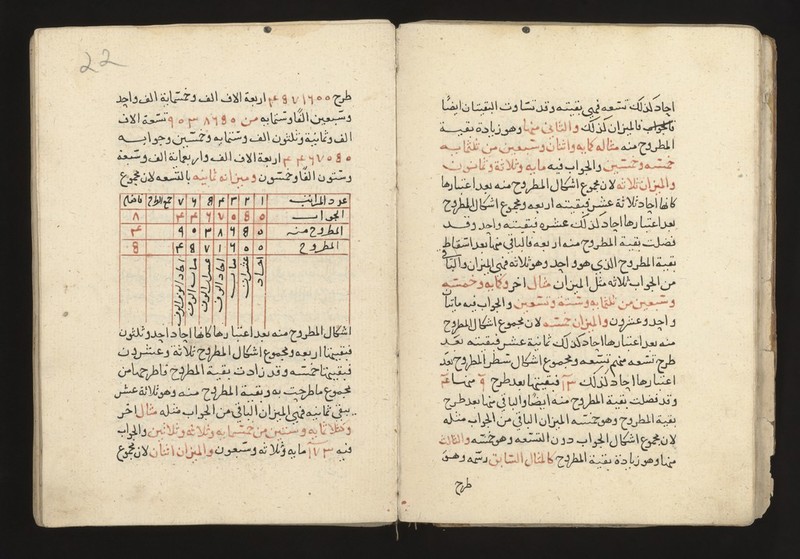 اجاد كذلك تسعه فهي بقيته وقد تساوت البقيتان ايضًا
فالجواب فالميزان كذلك والثاني منها وهو زيادة بقيـة
المطروح منه مثاله كمايه واثنان وسبعين من ثلثمايه
خمسه وخمسين والجواب فيه مايه وثلاثة وثمانون
والميزان ثلاثه لان مجموع اشكال المطروح منه بعد اعتبارها
كانها احاد ثلاثة عشر فبقيته اربعه ومجموع اشكال المطروح
بعد اعتبارها احاد كذلك عشره فبقيته واحد وقـد
فضلت بقية المطروح منه اربعه فالباقي منها بعد اسقاط
بقية المطروح الذي هو واحد وهو ثلاثه فهي الميزان والباقي
من الجواب ثلاثه مثل الميزان مثال اخر وكمايه وخمسه
وسبعين من ثلثمايه وستة وتسعين والجواب فيه مايتان
واحد وعشرون والميزان خمسه لان مجموع اشكال المطروح
منه بعد اعتبارها احاد كذلك ثمانية عشر فبقيته بعـد
طرح تسعه منهم تسعه ومجموع اشكال سطر المطروح بعد
اعتبارها احاد كذلك ١٣ فبقيتها بعد طرح ٩ منها ٤
وقد فضلت بقية المطروح منه ايضًا والباقي منها بعد طرح
بقية المطروح وهو خمسه الميزان الباقي من الجواب مثـله
لان مجموع اشكال الجواب دون التسعه وهو خمسه والثالث
منها وهو زيادة بقية المطروح كالمثال السابق رسمه وهـو
طرح
22
طرح اربعة الاف الف وخمسماية الف واحد
وسبعين الفا وستمايه من تسعة الاف
الف وثمانية وثلثون الف وستمايه وخمسين وجوابـه
اربعة الاف الف واربعماية الف وسبعة
وستون الفا وخمسون وميزانه ثمانيه بالتسعه لان مجموع
عدد المراتب ١ ٢ ٣ ٤ ٥ ٦ ٧
الجواب
المطروح منه
المطروح
احاد
عشرات
مات
احاد الوف
عشرات الوف
مات الوف
احاد الوف الوف
اشكال المطروح منه بعد اعتبارها كانها احاد احد وثلثون
فبقيتها اربعه ومجموع اشكال المطروح ثلاثة وعشـرون
فبقيتها خمسـه وقد زادت بقية المطروح فاطرحها من
مجموع ما طرحت به وبقية المطروح منه وهو ثلاثة عشر
يبقى ثمانيه فهي الميزان الباقي من الجواب مثله مثال اخر
وكثلاثمايه وستين من خمسمايه وثلاثة وثلاثين والجواب
فيه ١٧٣ مايه وثلاثه وسبعون والميزان اثنان لان مجموع